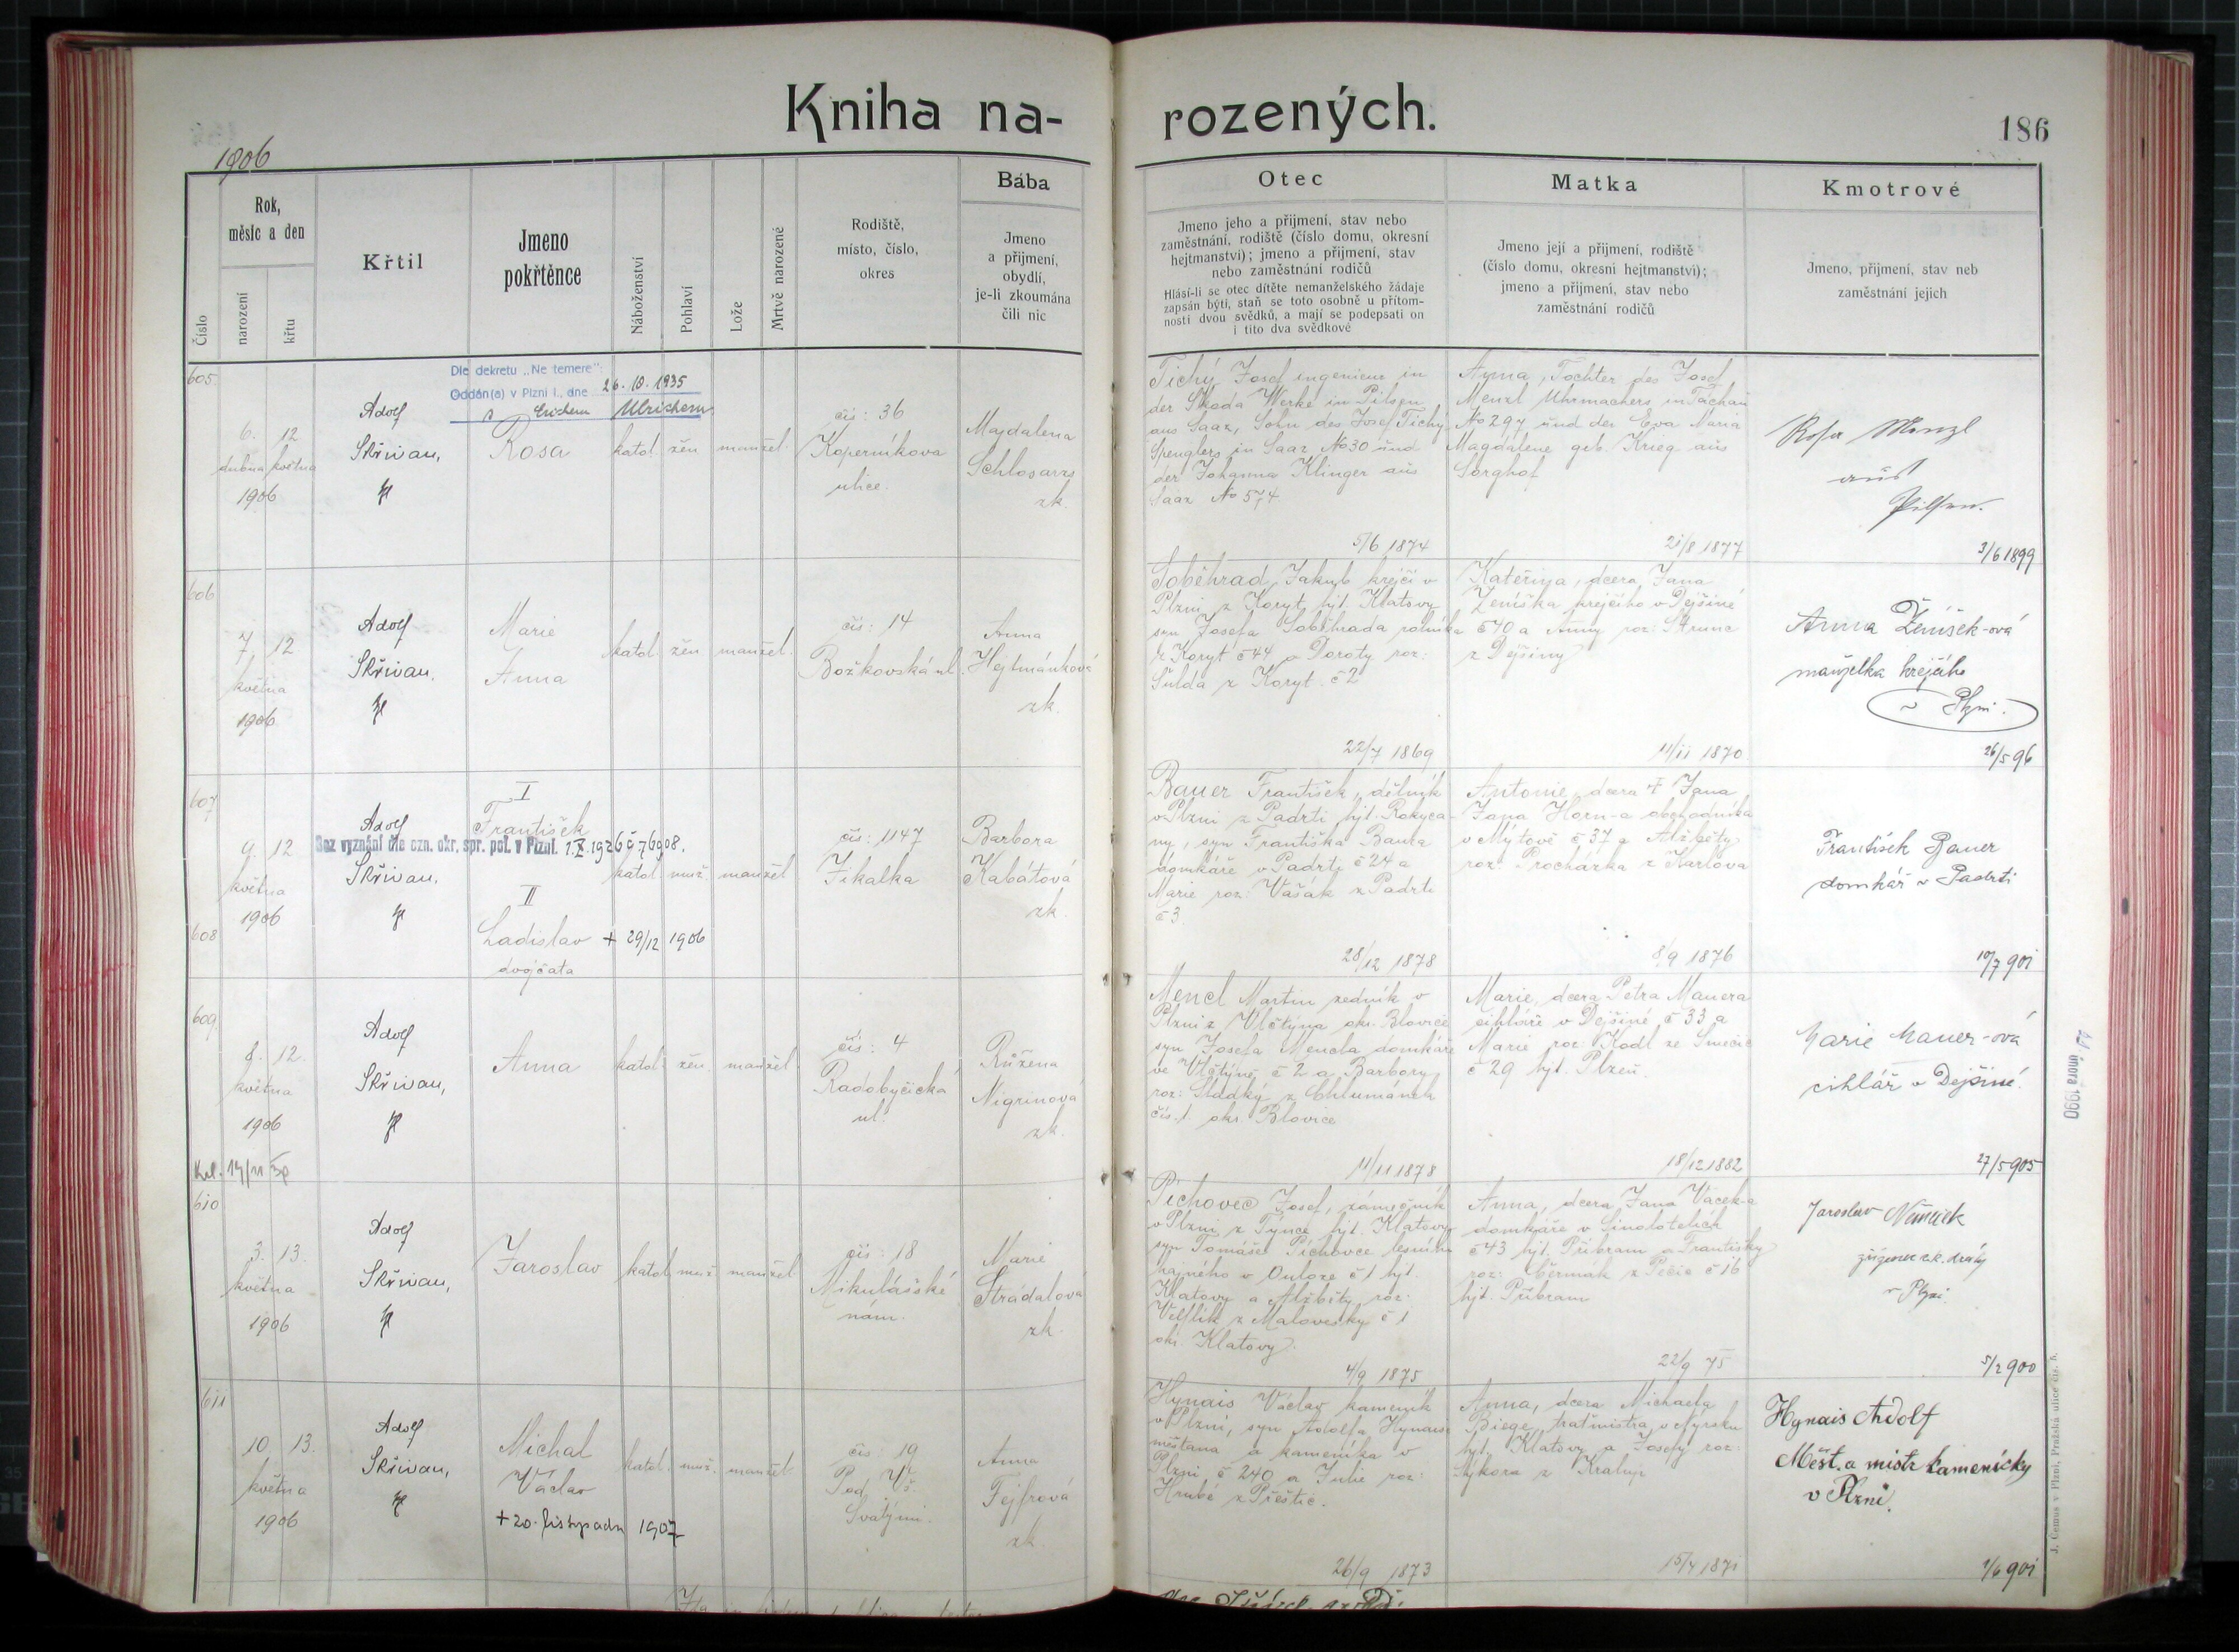 Kniha na-
rozených.
186
1906
Číslo
Rok,
měsíc a den
narození
křtu
Křtil
Jmeno
pokřtěnce
Náboženství
Pohlaví
Lože
Mrtvě narozené
Rodiště,
místo, číslo,
okres
Bába
Jmeno
a přijmení,
obydlí,
je-li zkoumána
čili nic
Otec
Jmeno jeho a přijmení, stav nebo
zaměstnání, rodiště (číslo domu, okresní
hejtmanství); jmeno a přijmení, stav
nebo zaměstnání rodičů
Hlásí-li se otec dítěte nemanželského žádaje
zapsán býti, staň se toto osobně u přítom-
nosti dvou svědků, a mají se podepsati on
i tito dva svědkové
Matka
Jmeno její a přijmení, rodiště
(číslo domu, okresní hejtmanství);
jmeno a přijmení, stav nebo
zaměstnání rodičů
Kmotrové
Jmeno, přijmení, stav neb
zaměstnání jejich
605
Dle dekretu „Ne temere":
Oddán(a) v Plzni I., dne 26. 10. 1935
s Erichem Ulrichem
6. 12
dubna května
1906
Adolf
Skřivan,
Rosa
katol. žen. manžel.
čís: 36
Koperníkova
ulice.
Majdalena
Schlosarz
zk.
Tichý Josef ingenieur in
der Škoda Werke in Pilsen
aus Saaz, Sohn des Josef Tichý
Spenglers in Saaz No 30 und
der Johanna Klinger aus
Saaz No 574
5/6 1874
Anna, Tochter des Josef
Menzl Uhrmachers in Tachau
No 297 und der Eva Maria
Magdalene geb. Krieg aus
Sorghof
21/8 1877
Rosa Menzl
aus
Pilsen.
3/6 1899
606
7. 12
května
1906
Adolf
Skřivan,
Marie
Anna
katol. žen. manžel.
čís: 14
Božkovská ul.
Anna
Hejtmánková
zk.
Soběhrad Jakub krejčí v
Plzni z Koryt hjt. Klatovy
syn Josefa Soběhrada rolníka
z Koryt č 44 a Doroty roz:
Šulda z Koryt č 2
22/7 1869
Kateřina, dcera Jana
Ženíška krejčího v Dejšině
č 40 a Anny roz: Strunc
z Dejšiny
11/11 1870
Anna Ženíšek-ová
manželka krejčího
v Plzni.
26/5 96
607
9. 12
května
1906
Adolf
Skřivan,
I
František
Bez vyznání dle ozn. okr. spr. pol. v Plzni. 1.X.1926 č 76908.
katol. muž. manžel
608
II
Ladislav + 29/12 1906
dvojčata
čís: 1147
Jikalka
Barbora
Kabátová
zk.
Bauer František, dělník
v Plzni z Padrti hjt. Rokyca-
ny, syn Františka Baura
domkáře v Padrti č 24 a
Marie roz: Vašák z Padrti
č 3
28/12 1878
Antonie, dcera + Jana
Jana Horn-a obchodníka
v Mýtově č 37 a Alžběty
roz: Procházka z Karlova
8/9 1876
František Bauer
domkář v Padrti
10/7 901
609
8. 12.
května
1906
Adolf
Skřivan,
Anna
katol. žen. manžel.
čís: 4
Radobyčická
ul.
Růžena
Nigrinova
zk.
Mencl Martin zedník v
Plzni z Vlčtýna okr. Blovice
syn Josefa Mencla domkáře
ve Vlčtýně č 2 a Barbory
roz: Sladký z Chlumánek
čís. 1 okr. Blovice
11/11 1878
Marie, dcera Petra Mauera
cihláře v Dejšině č 33 a
Marie roz: Kodl ze Smečic
č 29 hjt. Plzeň.
18/12 1882
Marie Mauer-ová
cihlář v Dejšině.
27/5 905
17 února 1990
610
3. 13.
května
1906
Adolf
Skřivan,
Jaroslav
katol. muž. manžel
čís: 18
Mikulášské
nám.
Marie
Strádalova
zk.
Pichovec Josef, zámečník
v Plzni z Týnce hjt. Klatovy
syn Tomáše Pichovce lesního
hajného v Ouloze č 1 hjt.
Klatovy a Alžběty roz:
z Malovesky č 1
okr. Klatovy
4/9 1875
Anna, dcera Jana Vacek-a
domkáře v
č 43 hjt. Příbram a Františky
roz: Čermák z Pečic č 16
hjt. Příbram
22/9 75
Jaroslav Němeček
zřízenec c.k. dráhy
v Plzni.
5/2 900
611
10. 13.
května
1906
Adolf
Skřivan,
Michal
Václav
+ 20. listopadu 1907
katol. muž. manžel
čís: 19
Pod Vš.
Svatými.
Anna
Fejfrová
zk.
Hynais Václav kameník
v Plzni, syn Adolfa Hynaise
měšťana a kameníka v
Plzni č 240 a Julie roz:
Hrubé z Přeštic.
26/9 1873
Anna, dcera Michaela
Biege, traťmistra v Nýrsku
hjt. Klatovy a Josefy roz:
Sýkora z Kralup
15/4 1871
Hynais Adolf
Měšt. a mistr kamenický
v Plzni.
1/6 901
J. Čemus v Plzni, Pražská ulice čís. 8.